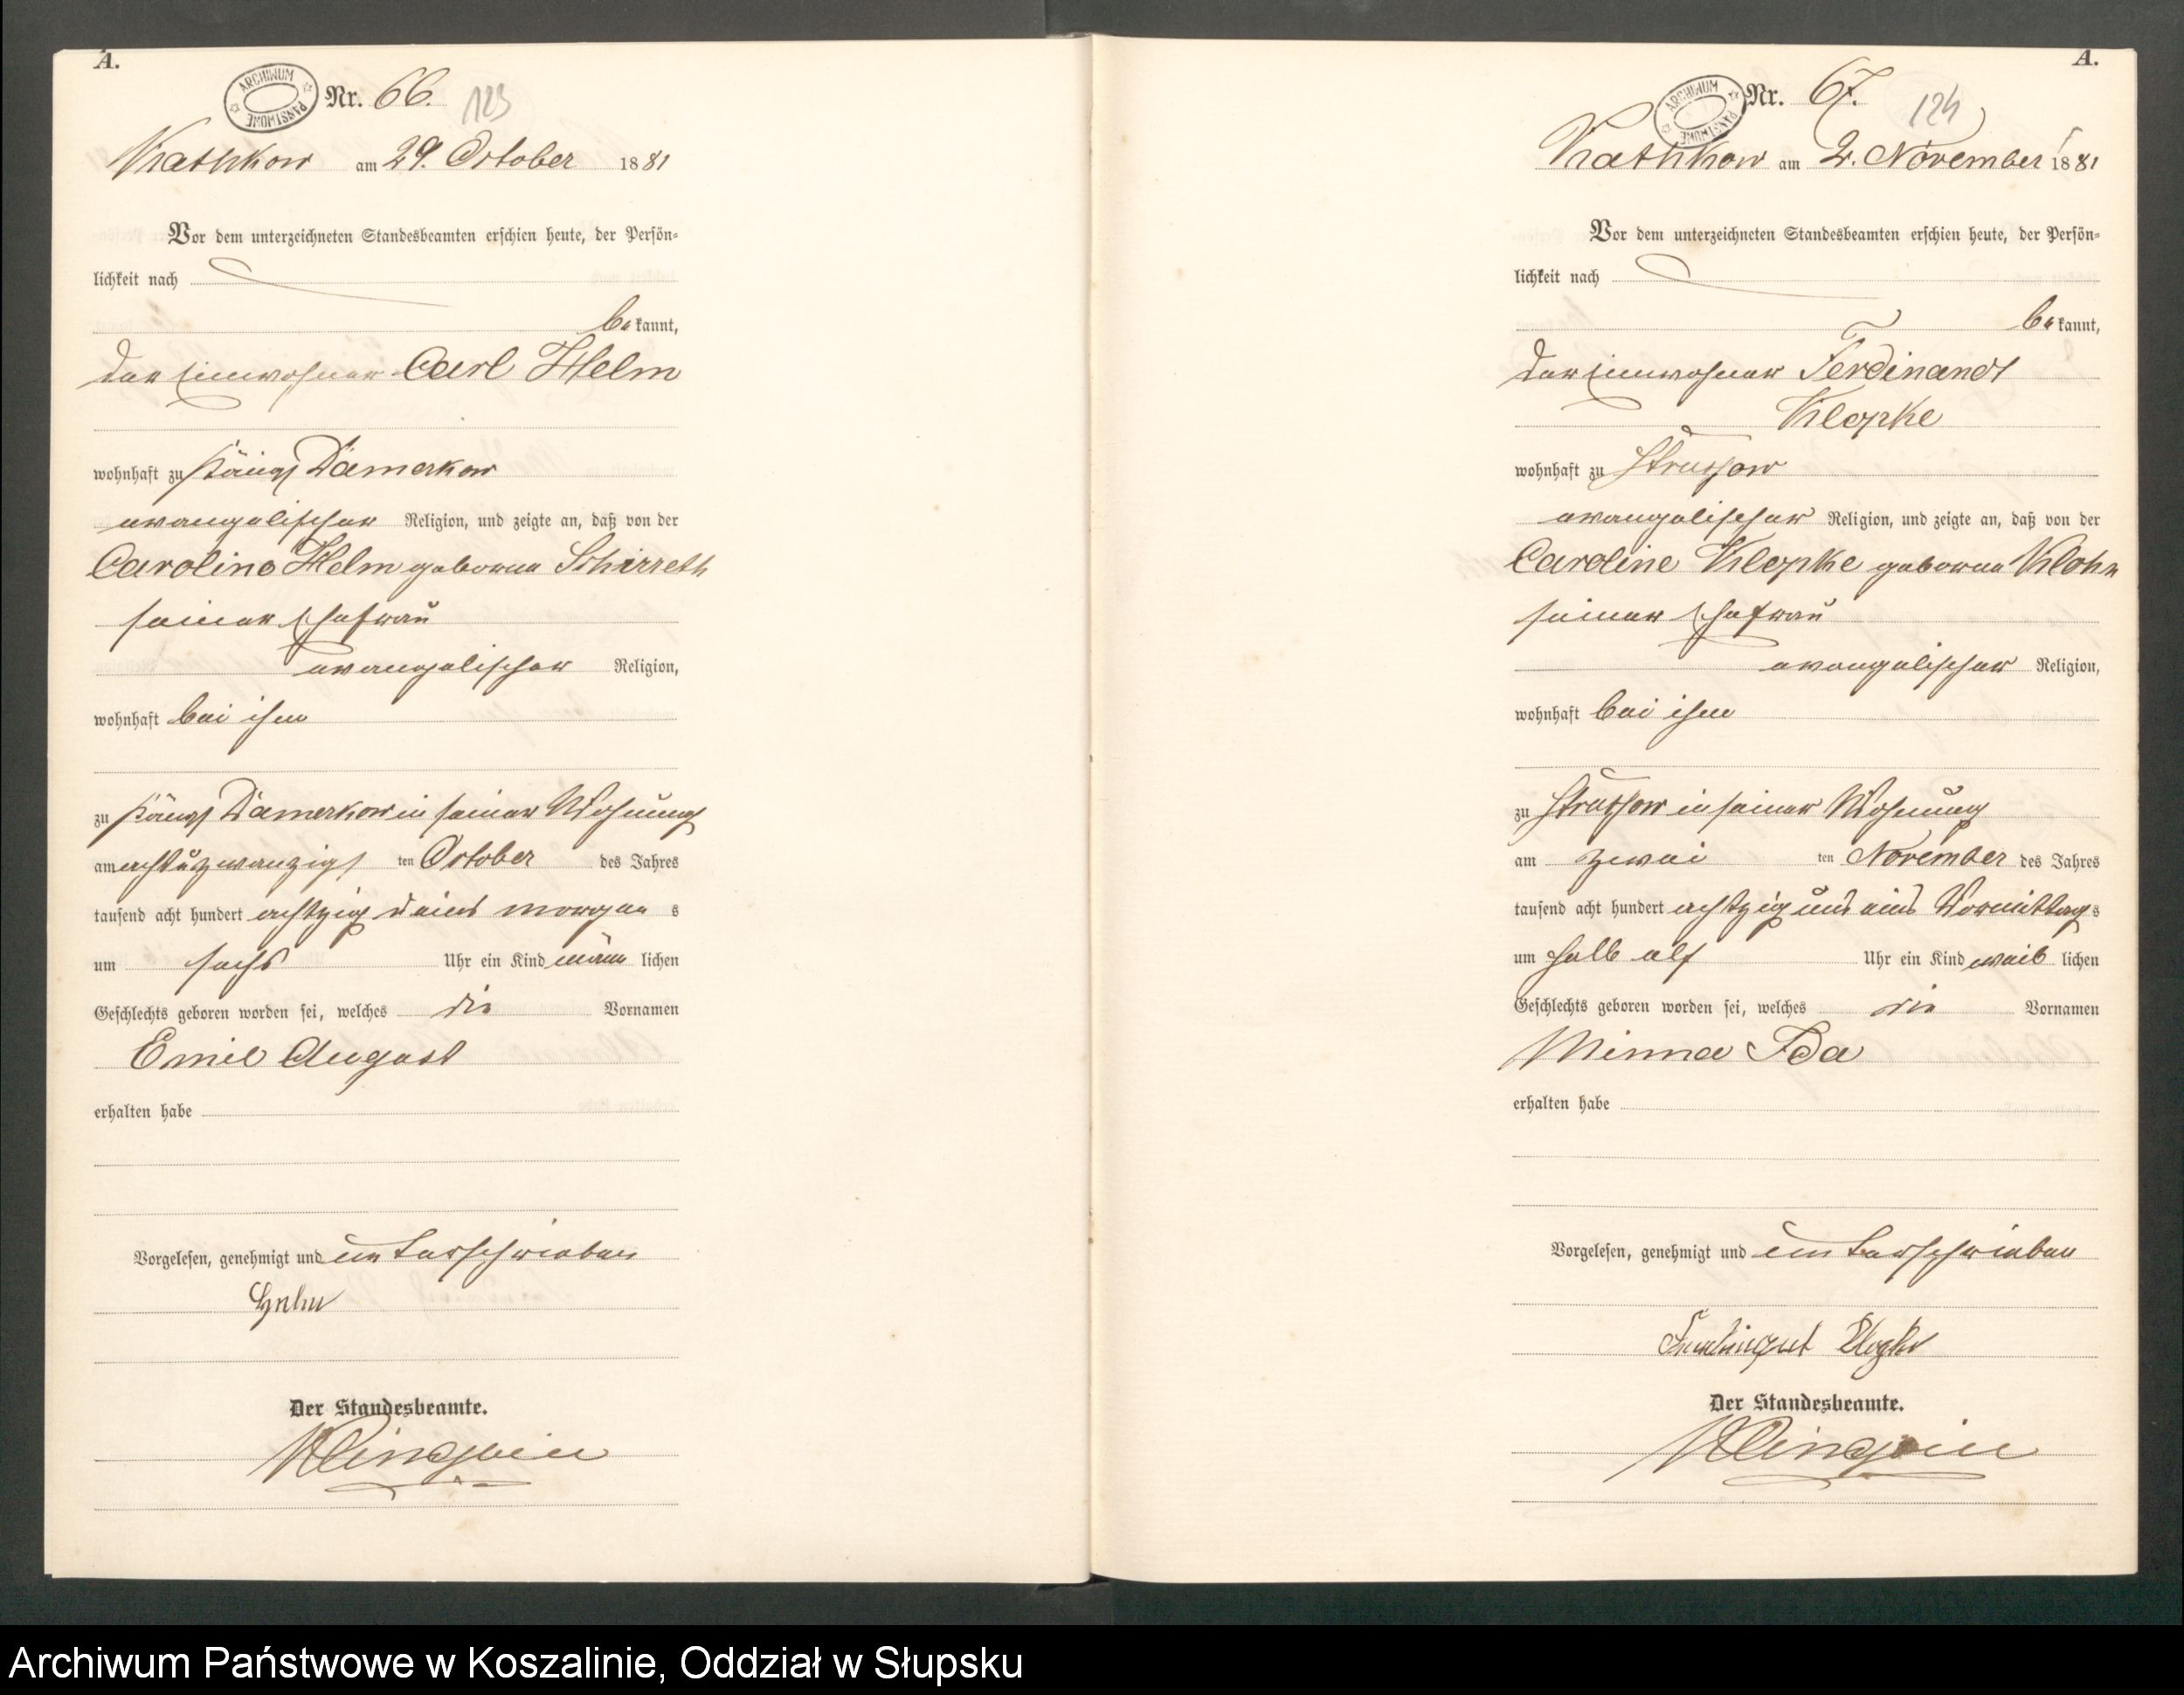 A.
ARCHIWUM PAŃSTWOWE
Nr. 66.
123
Krathkow am 29. October 1881
Vor dem unterzeichneten Standesbeamten erschien heute, der Persön=
lichkeit nach
bekannt,
der Einwohner Carl Helm
wohnhaft zu Königl Damerkow
evangelischer Religion, und zeigte an, daß von der
Caroline Helm geborne Schirreth
seiner Ehefrau
evangelischer Religion,
wohnhaft bei ihm
zu Königl Damerkow in seiner Wohnung
am achtuzwanzigs ten October des Jahres
tausend acht hundert achtzig u eins morgen s
um sechs Uhr ein Kind männ lichen
Geschlechts geboren worden sei, welches die Vornamen
Emil August
erhalten habe
Vorgelesen, genehmigt und unterschrieben
Helm
Der Standesbeamte.
A.
ARCHIWUM PAŃSTWOWE
Nr. 67.
124
Krathkow am 2. November 1881
Vor dem unterzeichneten Standesbeamten erschien heute, der Persön=
lichkeit nach
bekannt,
der Einwohner Ferdinandt
Klopke
wohnhaft zu Strussow
evangelischer Religion, und zeigte an, daß von der
Caroline Klopke geborne Klohn
seiner Ehefrau
evangelischer Religion,
wohnhaft bei ihm
zu Strussow in seiner Wohnung
am zwei ten November des Jahres
tausend acht hundert achtzig und eins Vormittag s
um halb elf Uhr ein Kind weib lichen
Geschlechts geboren worden sei, welches die Vornamen
Minna Ida
erhalten habe
Vorgelesen, genehmigt und unterschrieben
Klopke
Der Standesbeamte.
Archiwum Państwowe w Koszalinie, Oddział w Słupsku